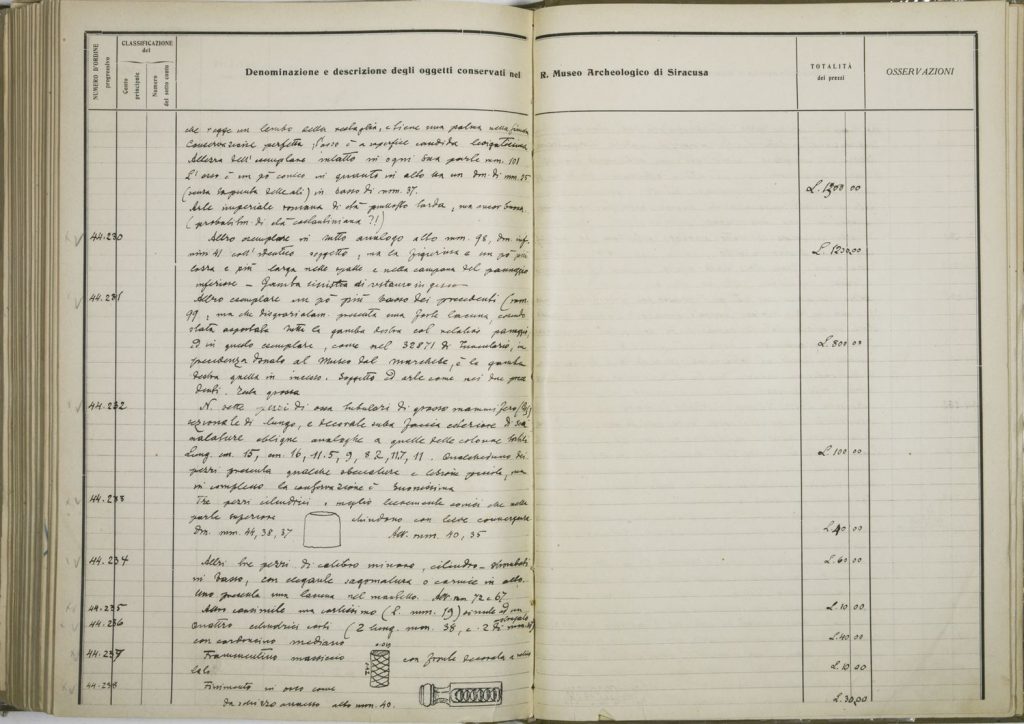 NUMERO D'ORDINE progressivo
CLASSIFICAZIONE del
Conto principale
Numero del sotto conto
Denominazione e descrizione degli oggetti conservati nel R. Museo Archeologico di Siracusa
TOTALITÀ dei prezzi
OSSERVAZIONI
che regge un lembo della, e tiene una palma nella
Conservazione perfetta; l'osso è a superficie candida
Altezza dell'esemplare intatto in ogni sua parte mm. 101
L'osso è un pò conico in quanto in alto ha un dm. di mm. 25
(senza la punta delle ali) in basso di mm. 37. L. 1300 00
Arte imperiale romana di età piuttosto tarda, ma ancor buona
(probabilm. di età costantiniana ?!)
44.230 Altro esemplare in tutto analogo alto mm. 98, dm. inf.
mm 41 coll'identico soggetto, ma la figurina è un pò più L. 1200.00
bassa e più larga nelle spalle e nella campana del panneggio
inferiore - Gamba sinistra di restauro in gesso
44.231 Altro esemplare un pò più basso dei precedenti (mm.
99, ma che disgraziatam. presenta una forte lacuna, essendo
stata asportata tutta la gamba destra col relativo
Ed in questo esemplare, come nel 32871 di, in L. 800 00
precedenza donato al Museo dal marchese, è la gamba
destra quella in incesso. Soggetto ed arte come nei due prece
denti. Testa grossa
44.232 N. sette pezzi di ossa tubulari di grosso mammifero
di lungo, e decorate sulla faccia esteriore di sca
nalature oblique analoghe a quelle delle colonne tortili
Lung. cm. 15, cm. 16, 11.5, 9, 8.2, 11.7, 11. Qualcheduno dei L. 100 00
pezzi presenta qualche sbeccatura e lesione piccola, ma
in complesso la conservazione è buonissima
44.233 Tre pezzi cilindrici, meglio lievemente conici che nella
parte superiore chiudono con lieve convergenza
Dm. mm. 44, 38, 37 Alt. mm. 40, 35 L. 40 00
44.234 Altri tre pezzi di calibro minore, cilindro- L. 60 00
in basso, con elegante sagomatura o cornice in alto.
Uno presenta una lacuna nel mantello. Alt. mm 72 e 67
44.235 Altro consimile ma cortissimo (L. mm. 19) simile ad un L. 10.00
44.236 Quattro cilindrici corti (2 lung. mm. 38, e 2 di mm.
con cordoncino mediano L. 40 00
44.237 Frammentino massiccio con fronte decorata a
lato L. 10 00
44.238 Finimento in osso come
da schizzo annesso alto mm. 40. L. 30,00